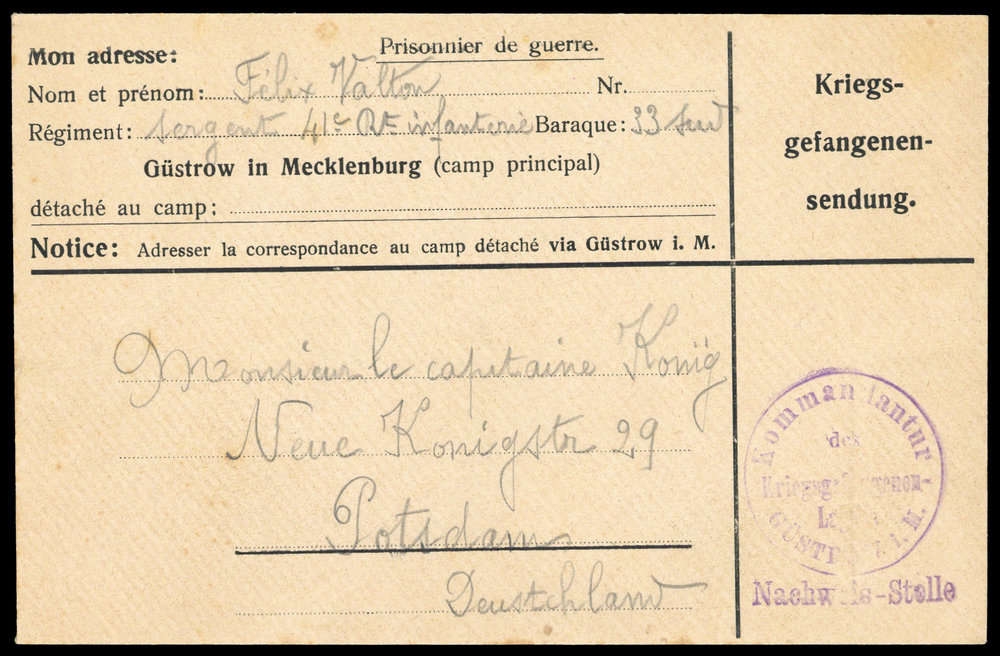 Mon adresse: Prisonnier de guerre.
Nom et prénom: Félix Valton Nr.
Régiment: Sergent 41e Rt infanterie Baraque: 33 sud
Güstrow in Mecklenburg (camp principal)
détaché au camp:
Notice: Adresser la correspondance au camp détaché via Güstrow i. M.
Kriegs-
gefangenen-
sendung.
Monsieur le capitaine König
Neue Konigstr 29
Potsdam
Deustchland
Kommandantur
des
Kriegsgefangenen-
GÜSTROW i. M.
Nachweis-Stelle